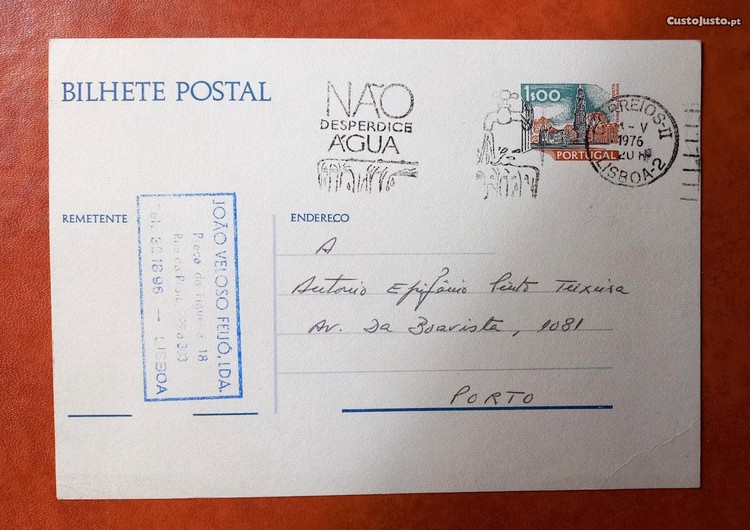 CustoJusto.pt
BILHETE POSTAL
NÃO
DESPERDICE
ÁGUA
1$00
PORTUGAL
CORREIOS-II
-V
1976
20H
LISBOA-2
REMETENTE
JOÃO VELOSO FEIJÓ, LDA.
18
LISBOA
ENDEREÇO
A
Antonio Epifânio Pinto Teixeira
Av. Da Boavista, 1081
PORTO